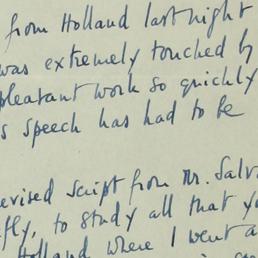 from Holland last night
was extremely touched by
pleasant work so quickly
s speech has had to be
evised script from Mr. Salv
fly, to study all that yo
Holland where I went a